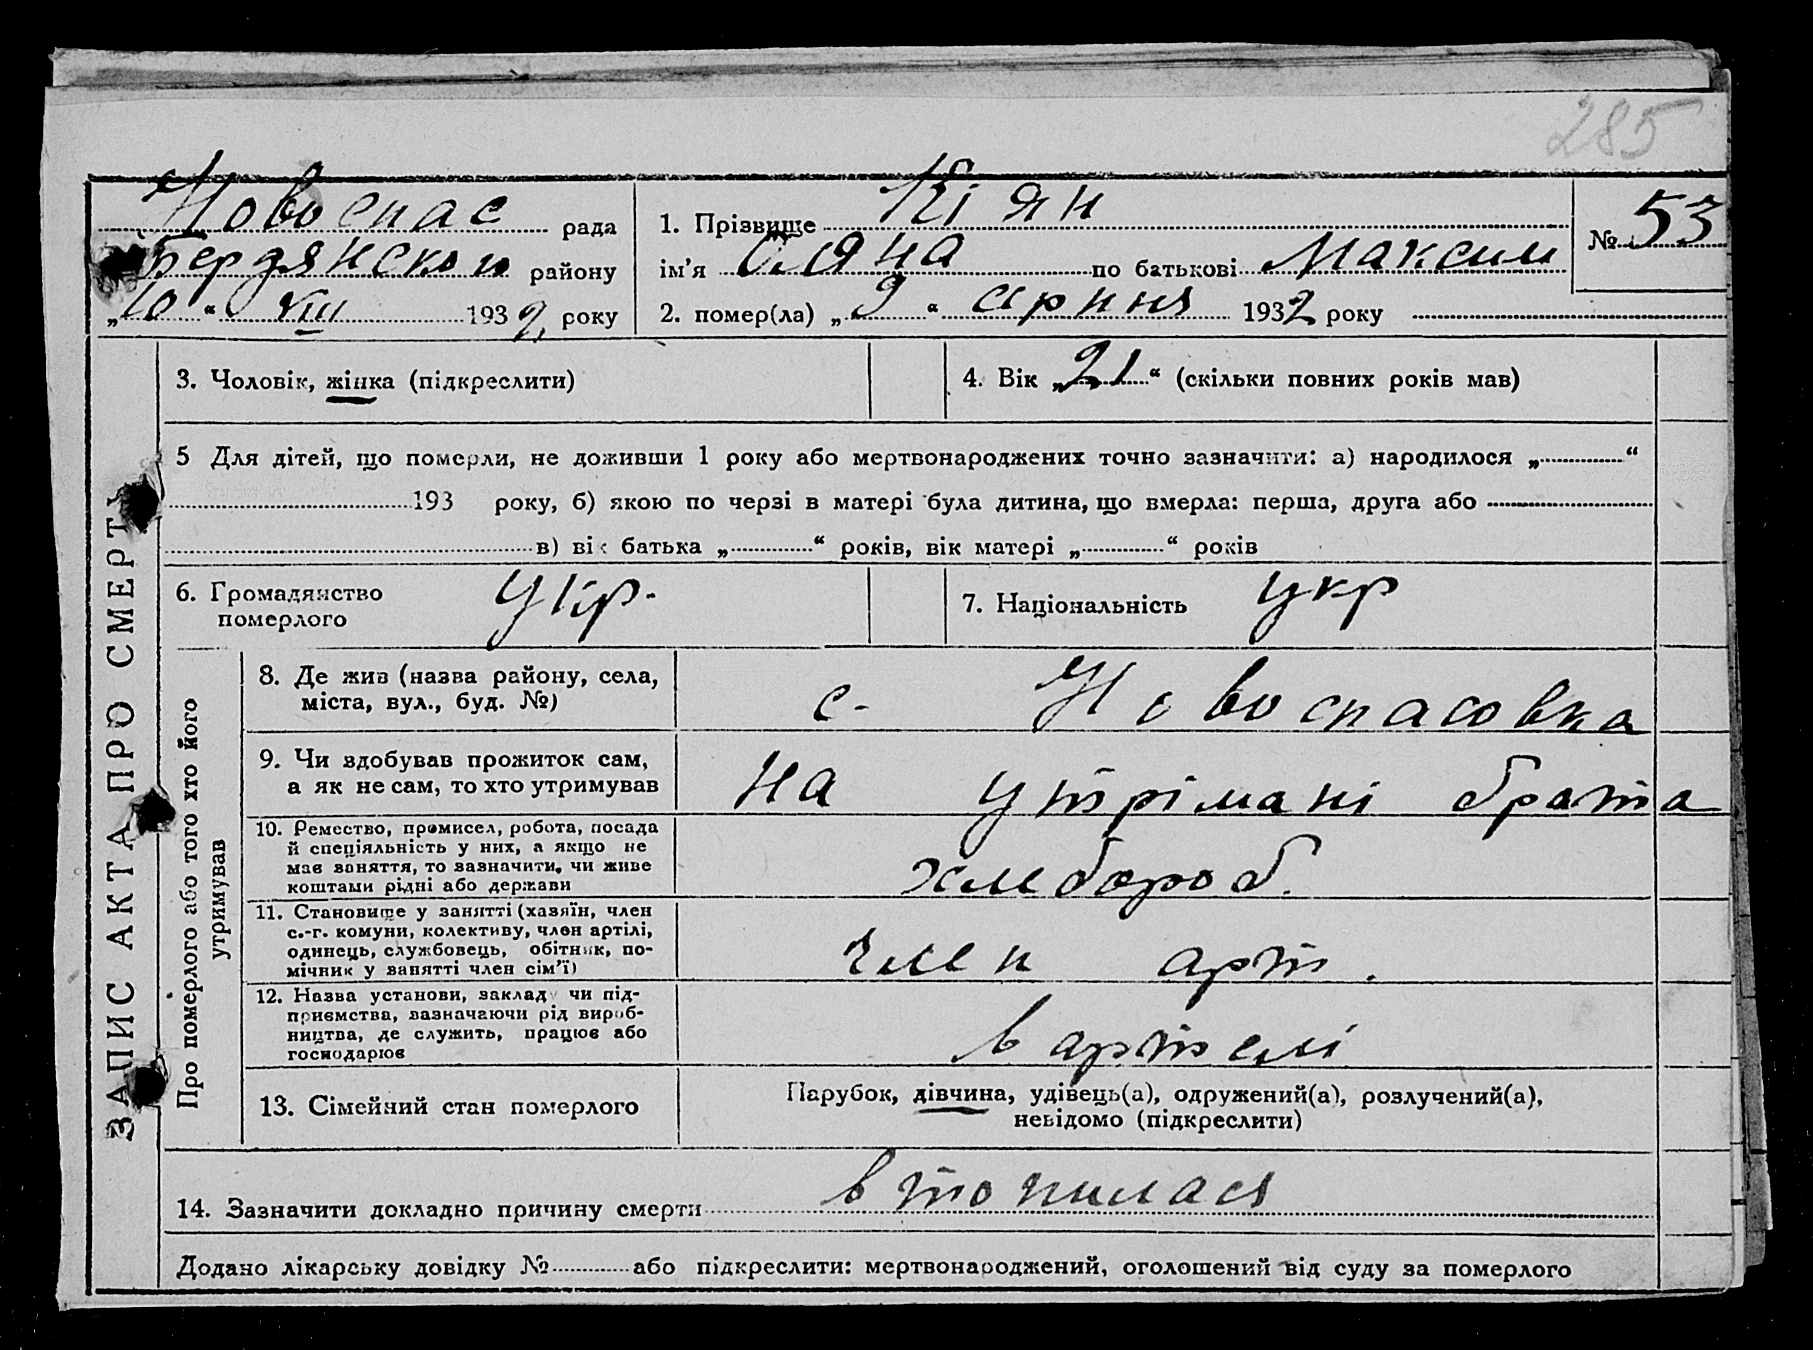 285
Новоспас рада
Бердянского району
„10“ VIII 1932, року
1. Прізвище Кіян
ім'я Оляна по батькові Максим
2. помер(ла) „9“ серпня 1932 року
№ 53
3. Чоловік, жінка (підкреслити)
4. Вік „21“ (скільки повних років мав)
5 Для дітей, що померли, не доживши 1 року або мертвонароджених точно зазначити: а) народилося „ “
193 року, б) якою по черзі в матері була дитина, що вмерла: перша, друга або
в) вік батька „ “ років, вік матері „ “ років
6. Громадянство
померлого
укр.
7. Національність укр
ЗАПИС АКТА ПРО СМЕРТЬ
Про померлого або того хто його
утримував
8. Де жив (назва району, села,
міста, вул., буд. №)
с. Новоспасовка
9. Чи здобував прожиток сам,
а як не сам, то хто утримував
на утрімані брата
10. Ремество, промисел, робота, посада
й спеціяльність у них, а якщо не
мав заняття, то зазначити, чи живе
коштами рідні або держави
хлебороб.
11. Становище у занятті (хазяїн, член
с.-г. комуни, колективу, член артілі,
одинець, службовець, обітник, по-
мічник у занятті член сім'ї)
член арт.
12. Назва установи, закладу чи під-
приємства, зазначаючи рід вироб-
ництва, де служить, працює або
господарює
в артелі
13. Сімейний стан померлого
Парубок, дівчина, удівець(а), одружений(а), розлучений(а),
невідомо (підкреслити)
14. Зазначити докладно причину смерти втопилася
Додано лікарську довідку № або підкреслити: мертвонароджений, оголошений від суду за померлого